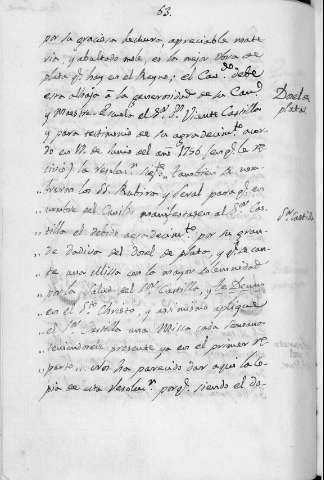 53.
por su graciosa hechura, apreciable mate
ria, y abultado mole, es la mejor obra de
plata q.e hay en el Reyno; el Cav.do debe
esta alhaja a la generosidad de su Can.o
y Maestre Escuela el S.or D.n Vicente Castillo
y para testimonio de su agradecim.to acor
do en 17 de Junio del año 1796 (en q.e la re
civio) la resoluc.n sig.te tambien se nom
braron los SS. Rubira y Leral para q.e en
nombre del Cavildo manifiestasen al S.or Cas
„ tillo el debido agradecim.to por su gran
„ de dadiva del dosel de plata, y q.e se can
„ te una Missa con la mayor solemnidad
„ por la salud del S.or Castillo, y la Deuda
„ en el S.to Christo, y asi mismo aplique
„ el S.or Castillo una Missa cada semana
„ teniendosele presente ya en el primer re
„ parto. Nos ha parecido dar aqui la co
pia de esta resoluc.n porq.e siendo el do-
Dosel de
plata
S.or Castillo